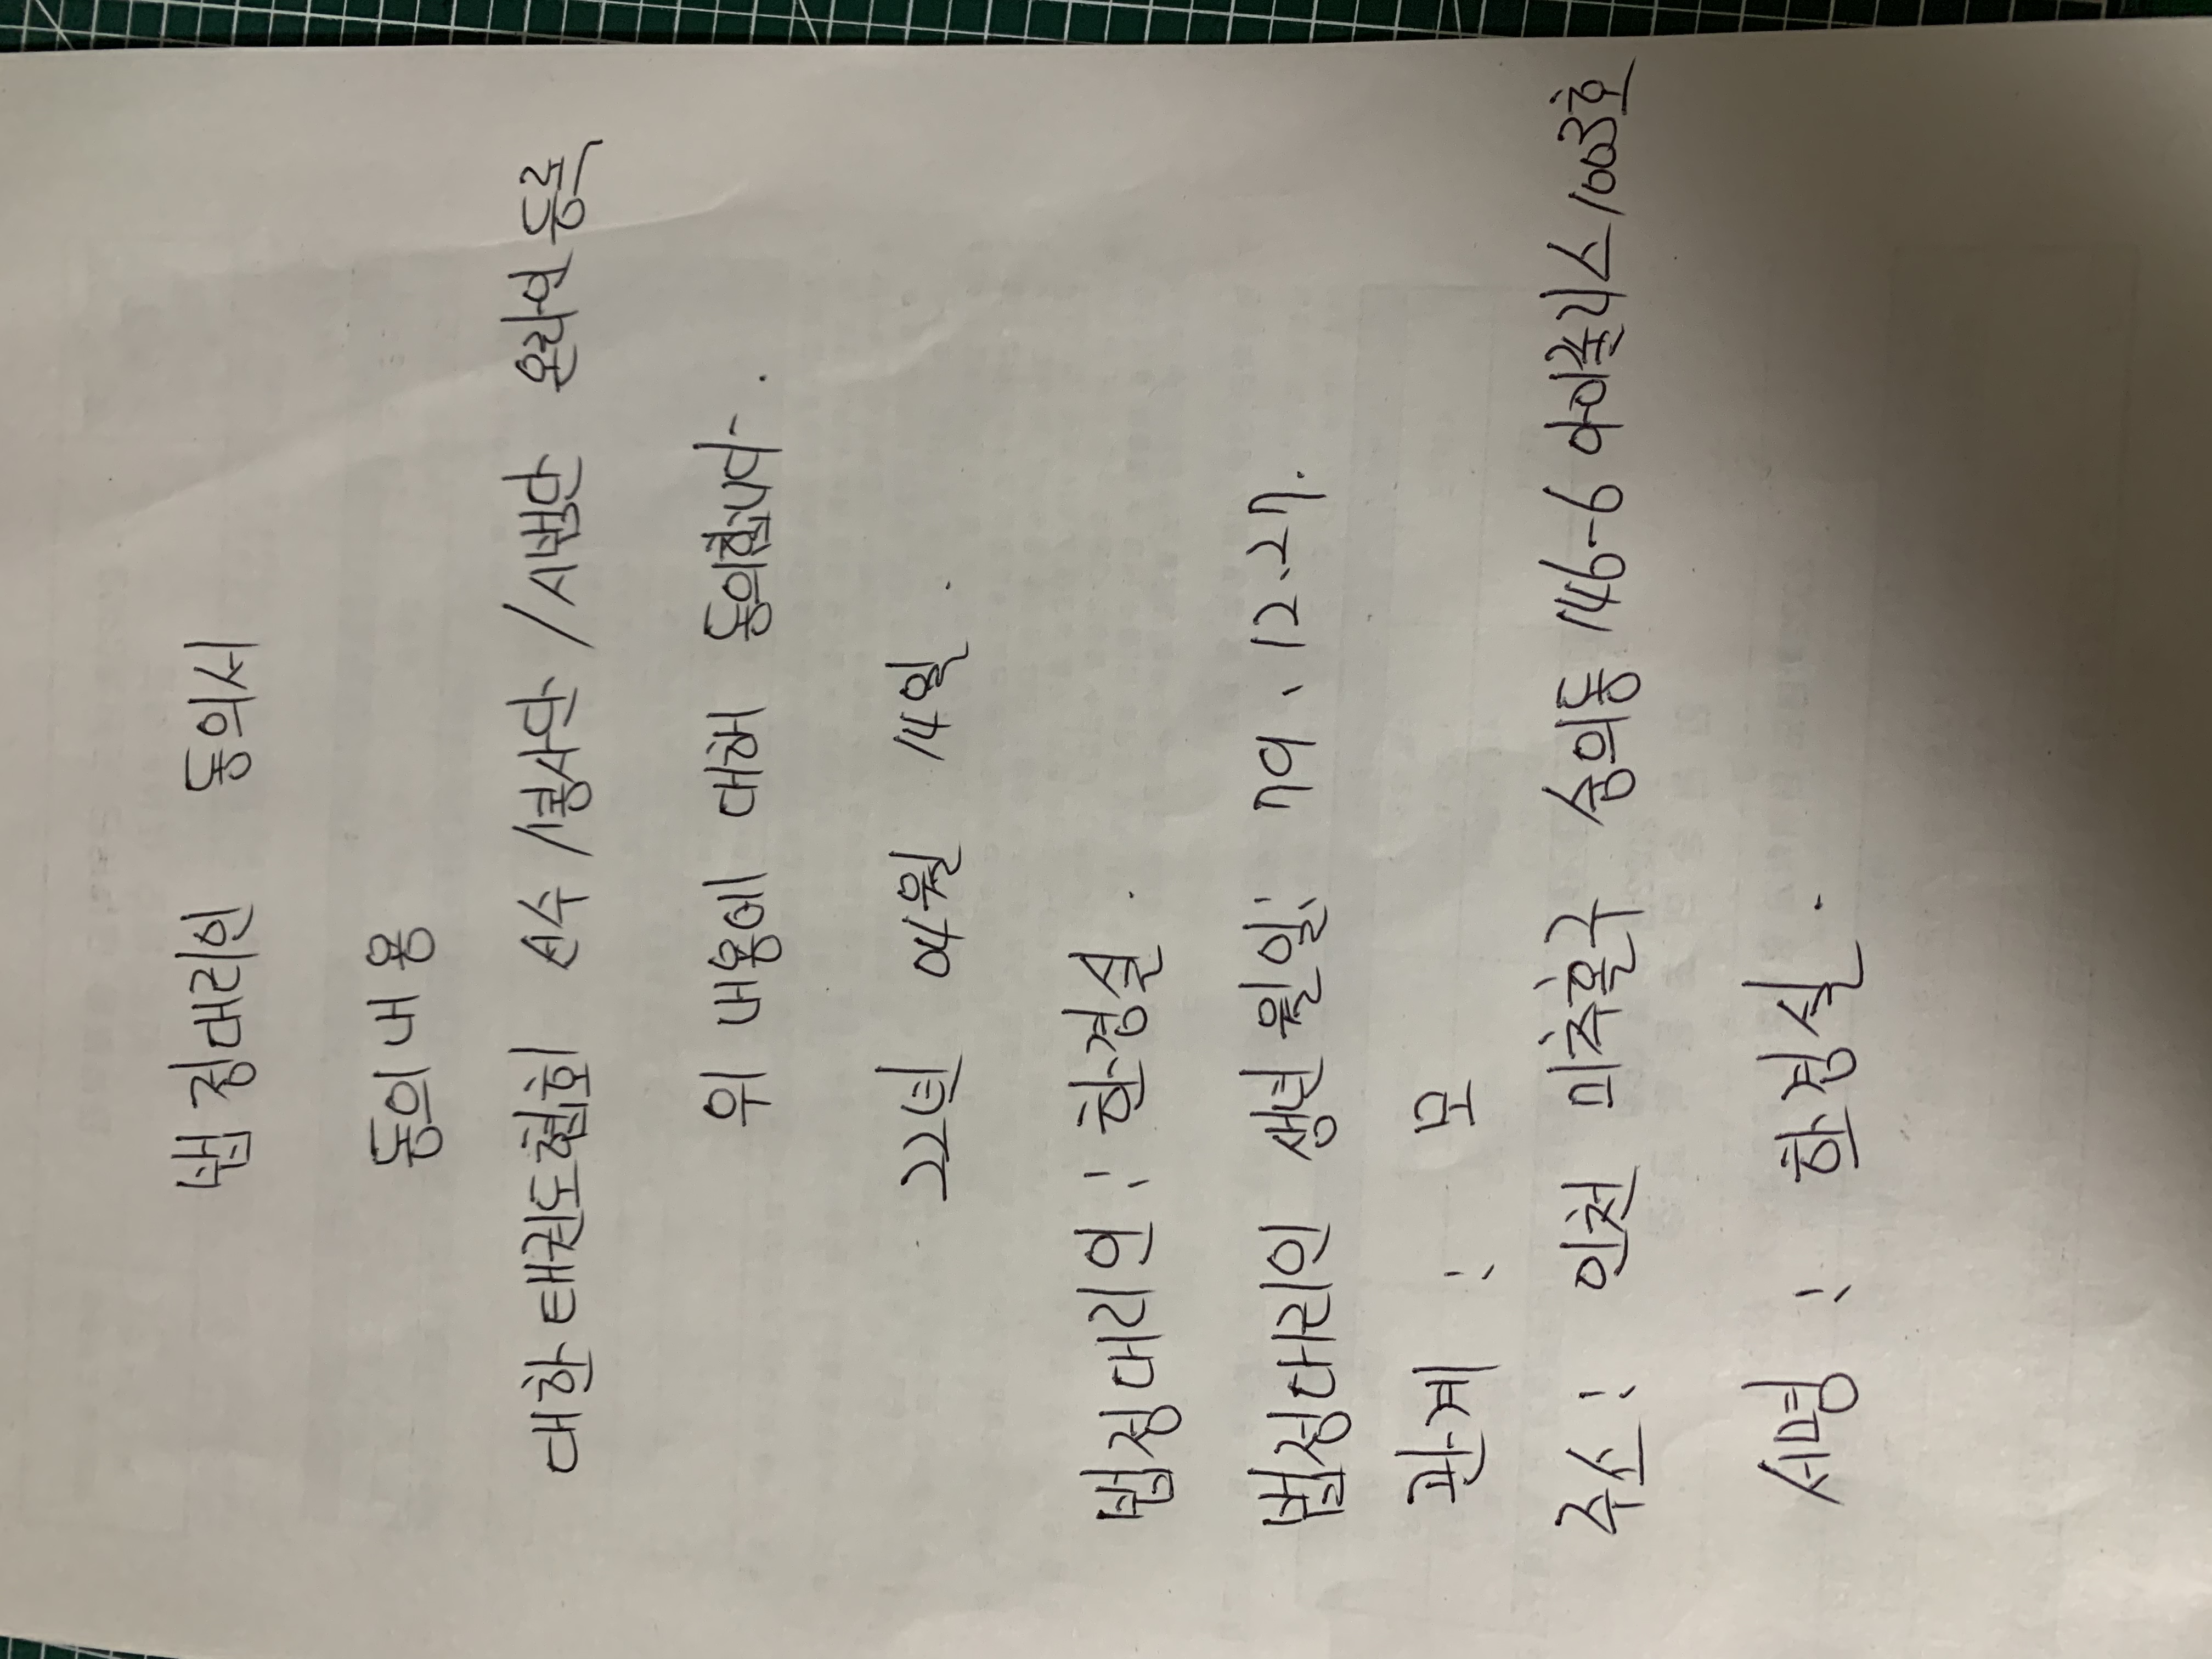 법정대리인 동의서
동의내용
대한태권도협회 선수/품사단/시범단 온라인 등록
위 내용에 대해 동의합니다.
22년 04월 14일.
법정대리인 : 한경실.
법정대리인 생년월일: 79.12.27.
관계 : 모
주소 : 인천 미추홀구 숭의동 146-6 아이폴리스 1003호
서명 : 한경실.